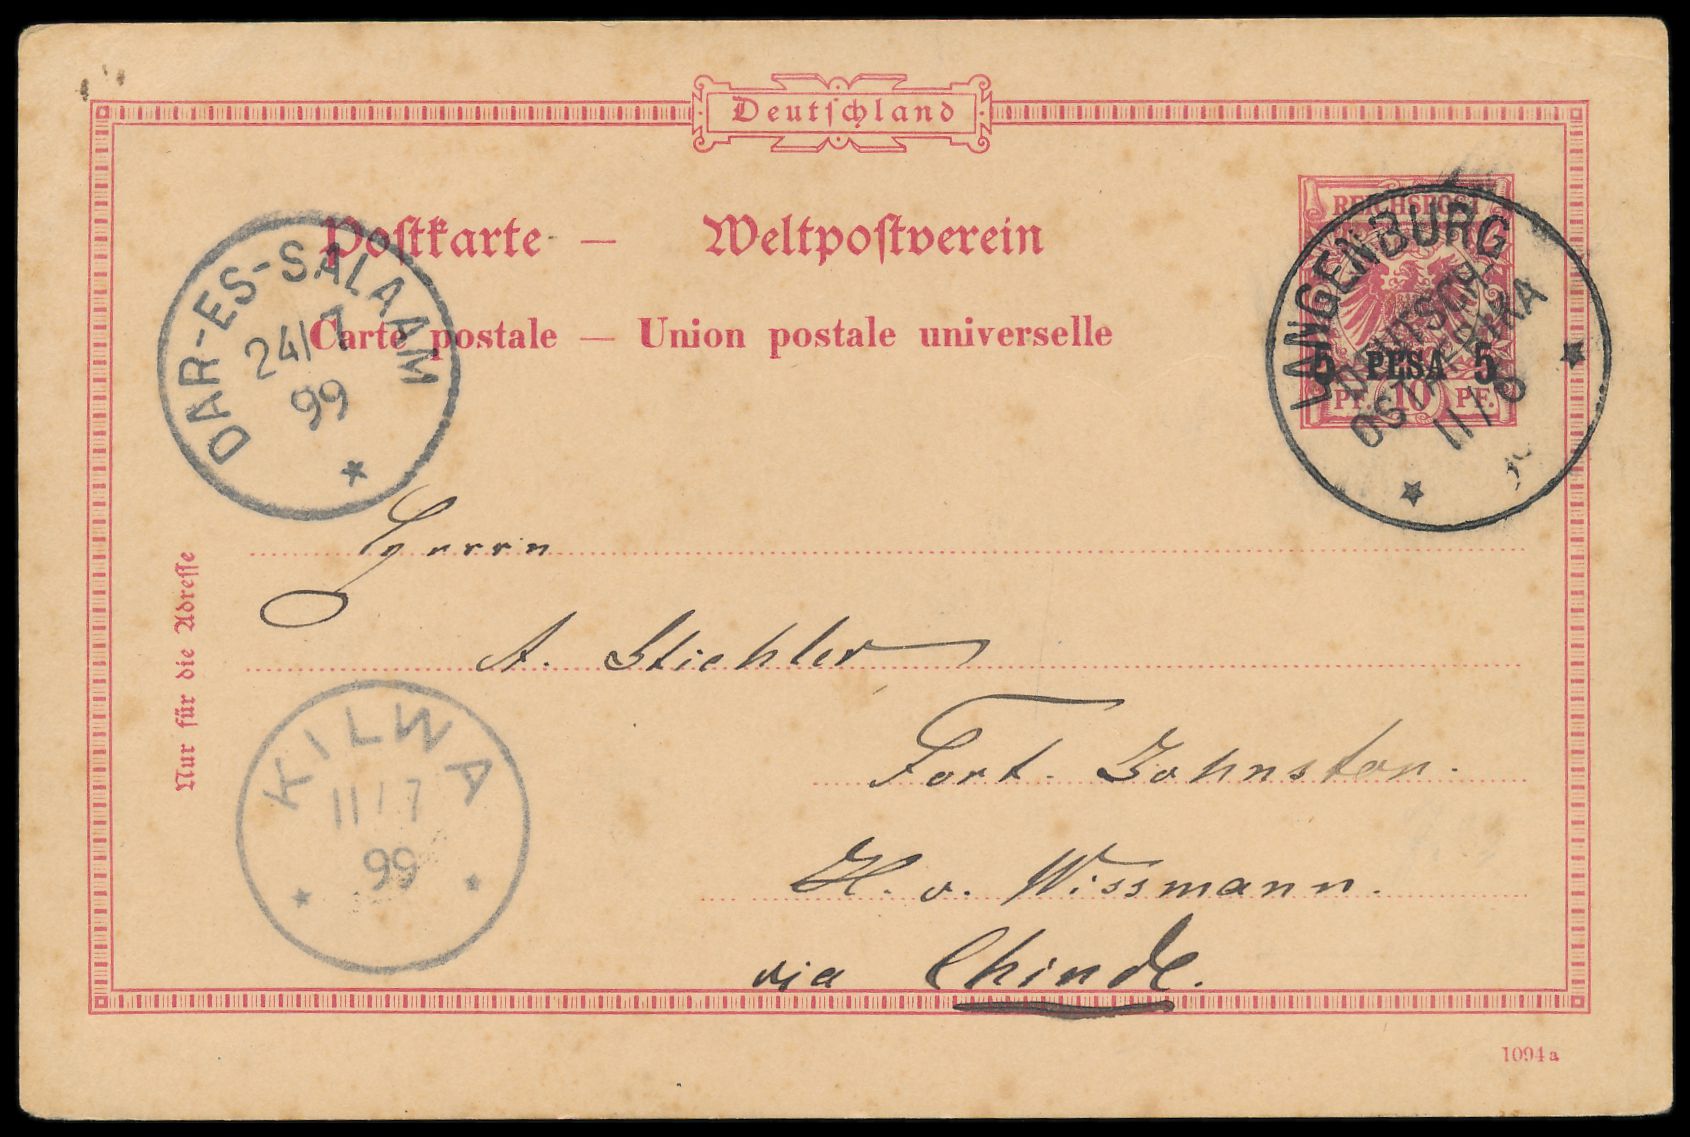 Deutschland
Postkarte — Weltpostverein
Carte postale — Union postale universelle
REICHSPOST
5 PESA 5
PF. 10 PF.
LANGENBURG
DEUTSCH-
OSTAFRIKA
11/6
DAR-ES-SALAAM
24/7
99
Herrn
A. Stiehler
Fort. Johnston.
H. v. Wissmann.
via Chinde.
KILWA
11/7
99
Nur für die Adresse
1094a